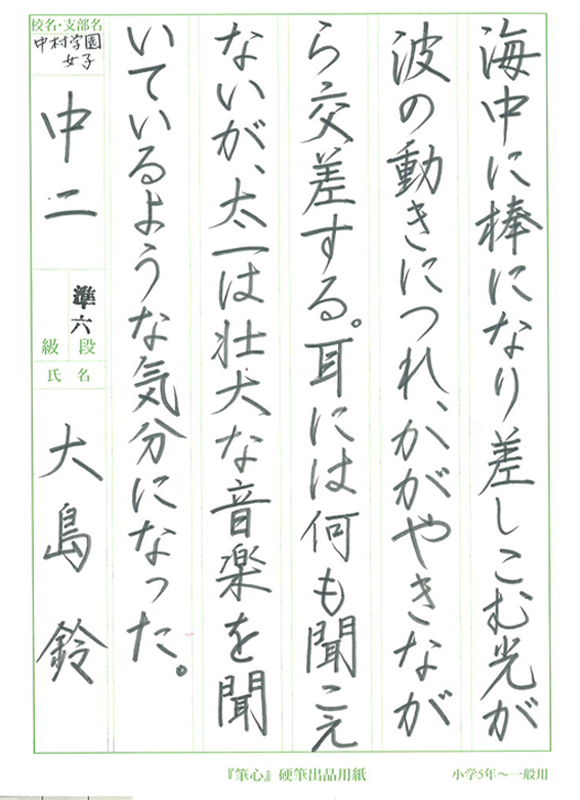 海中に棒になり差しこむ光が
波の動きにつれ、かがやきなが
ら交差する。耳には何も聞こえ
ないが、太一は壮大な音楽を聞
いているような気分になった。
校名・支部名
中村学園
女子
中二
準六
段
級
氏名
大島鈴
『筆心』硬筆出品用紙
小学5年〜一般用